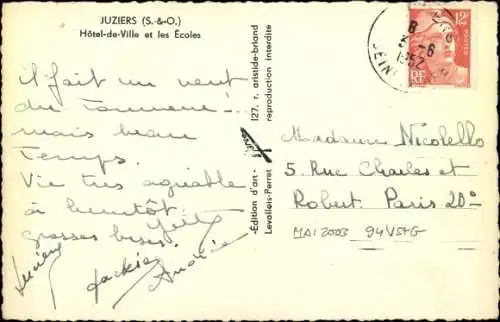 JUZIERS (S.-&-O.)
Hôtel-de-Ville et les Écoles
il fait un vent
du tonnerre
mais beau
temps.
Vie très agréable
à bientôt.
grosses bises
Lucienne
Jackie
-Édition d'art-
Levallois-Perret
127, r. aristide-briand
reproduction interdite
12F
POSTES
RF
8
-6
1952
SEINE
Madame Nicolello
5 Rue Charles et
Robert Paris 20e
MAI 2003 94VSTG